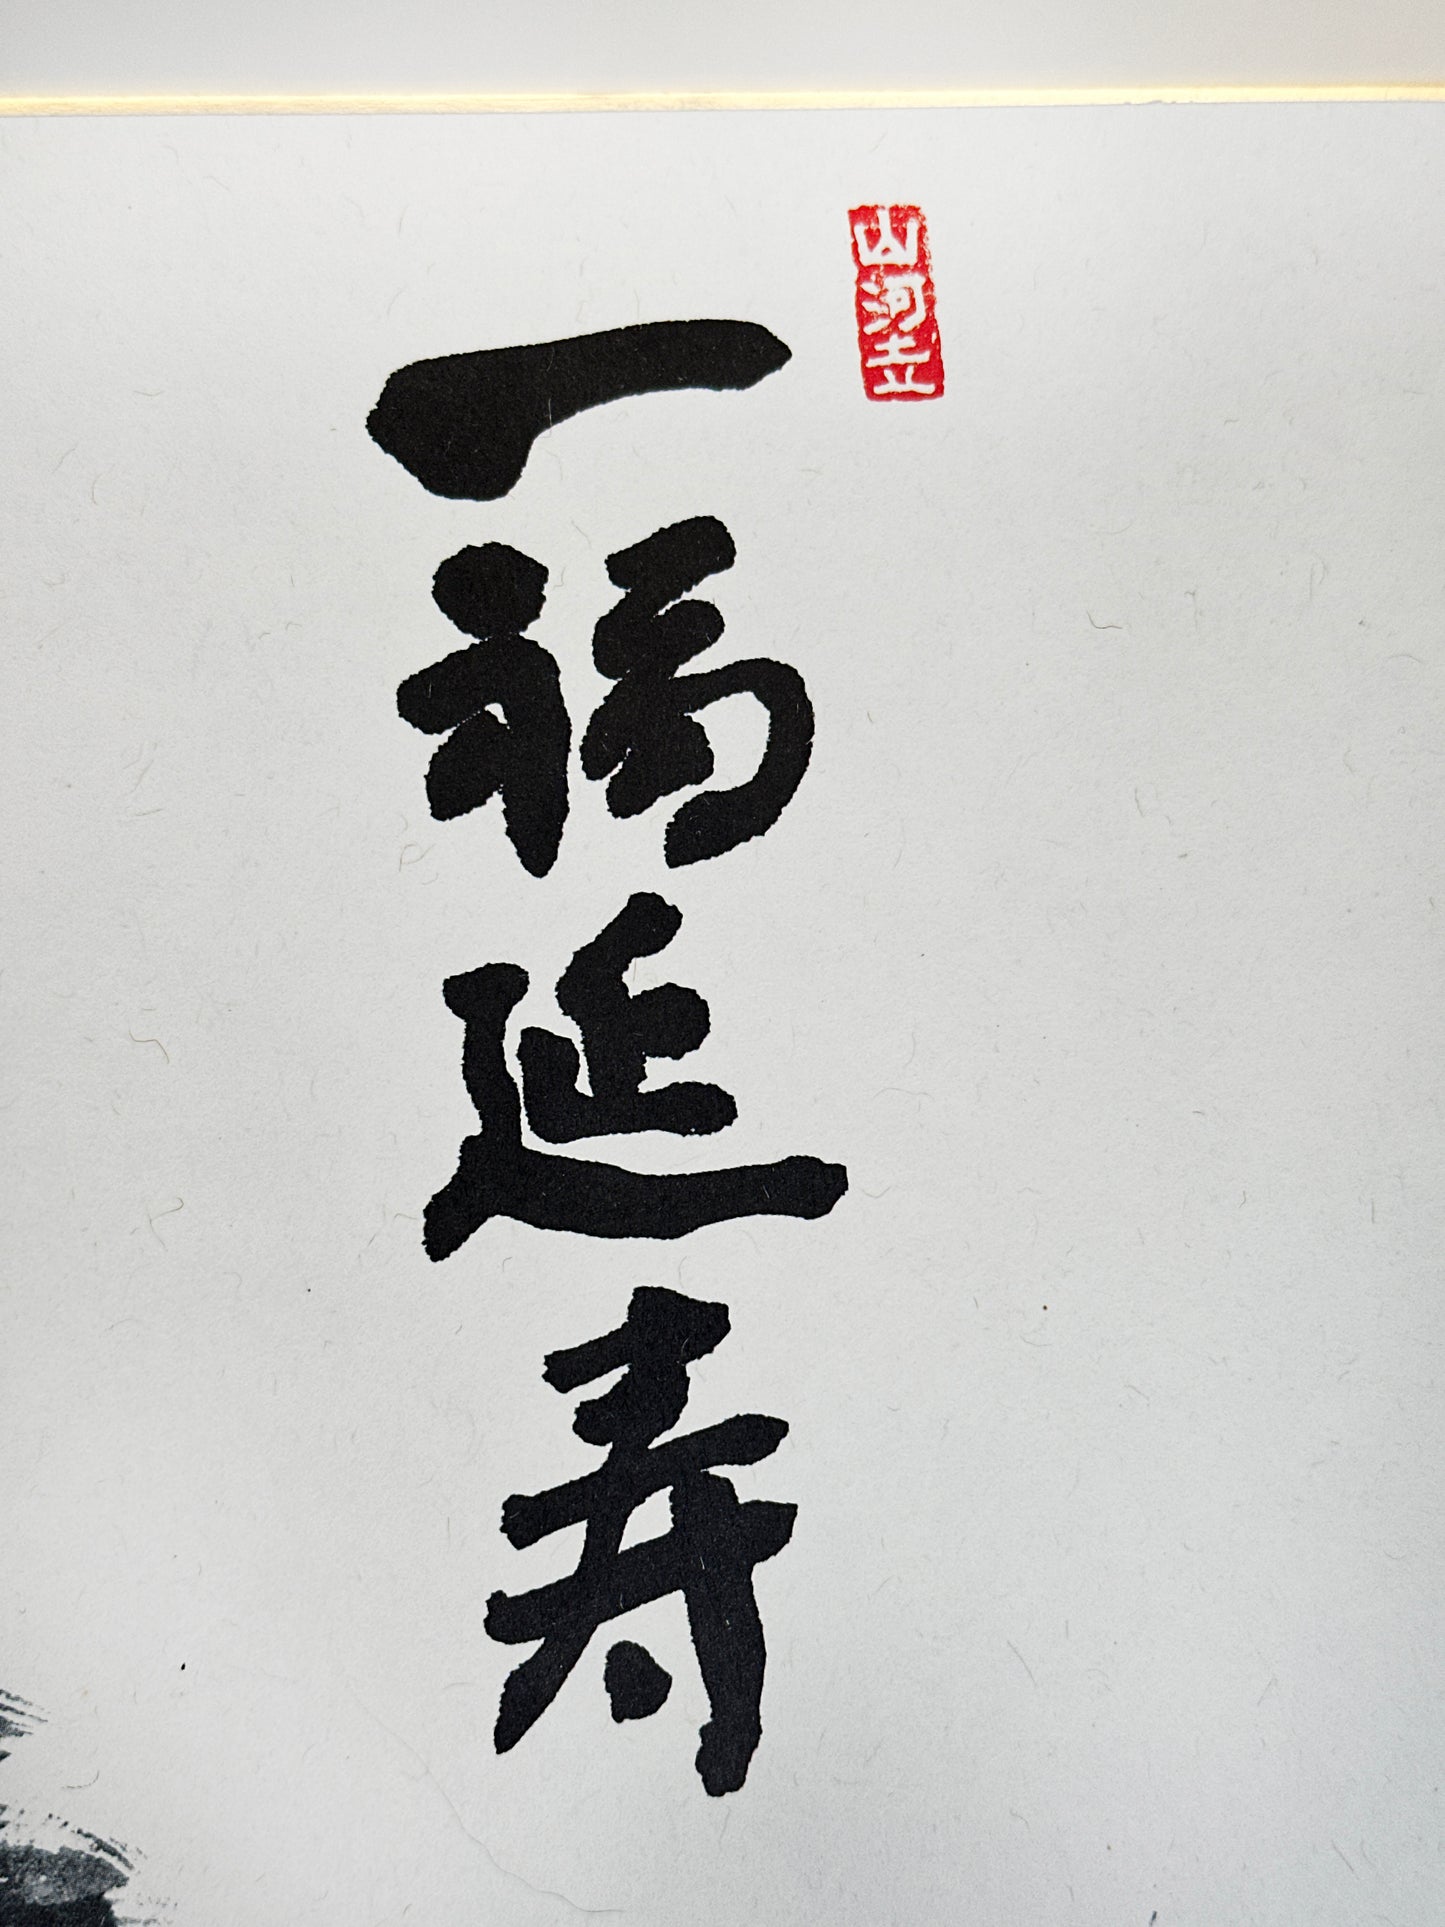 山河
一福延寿